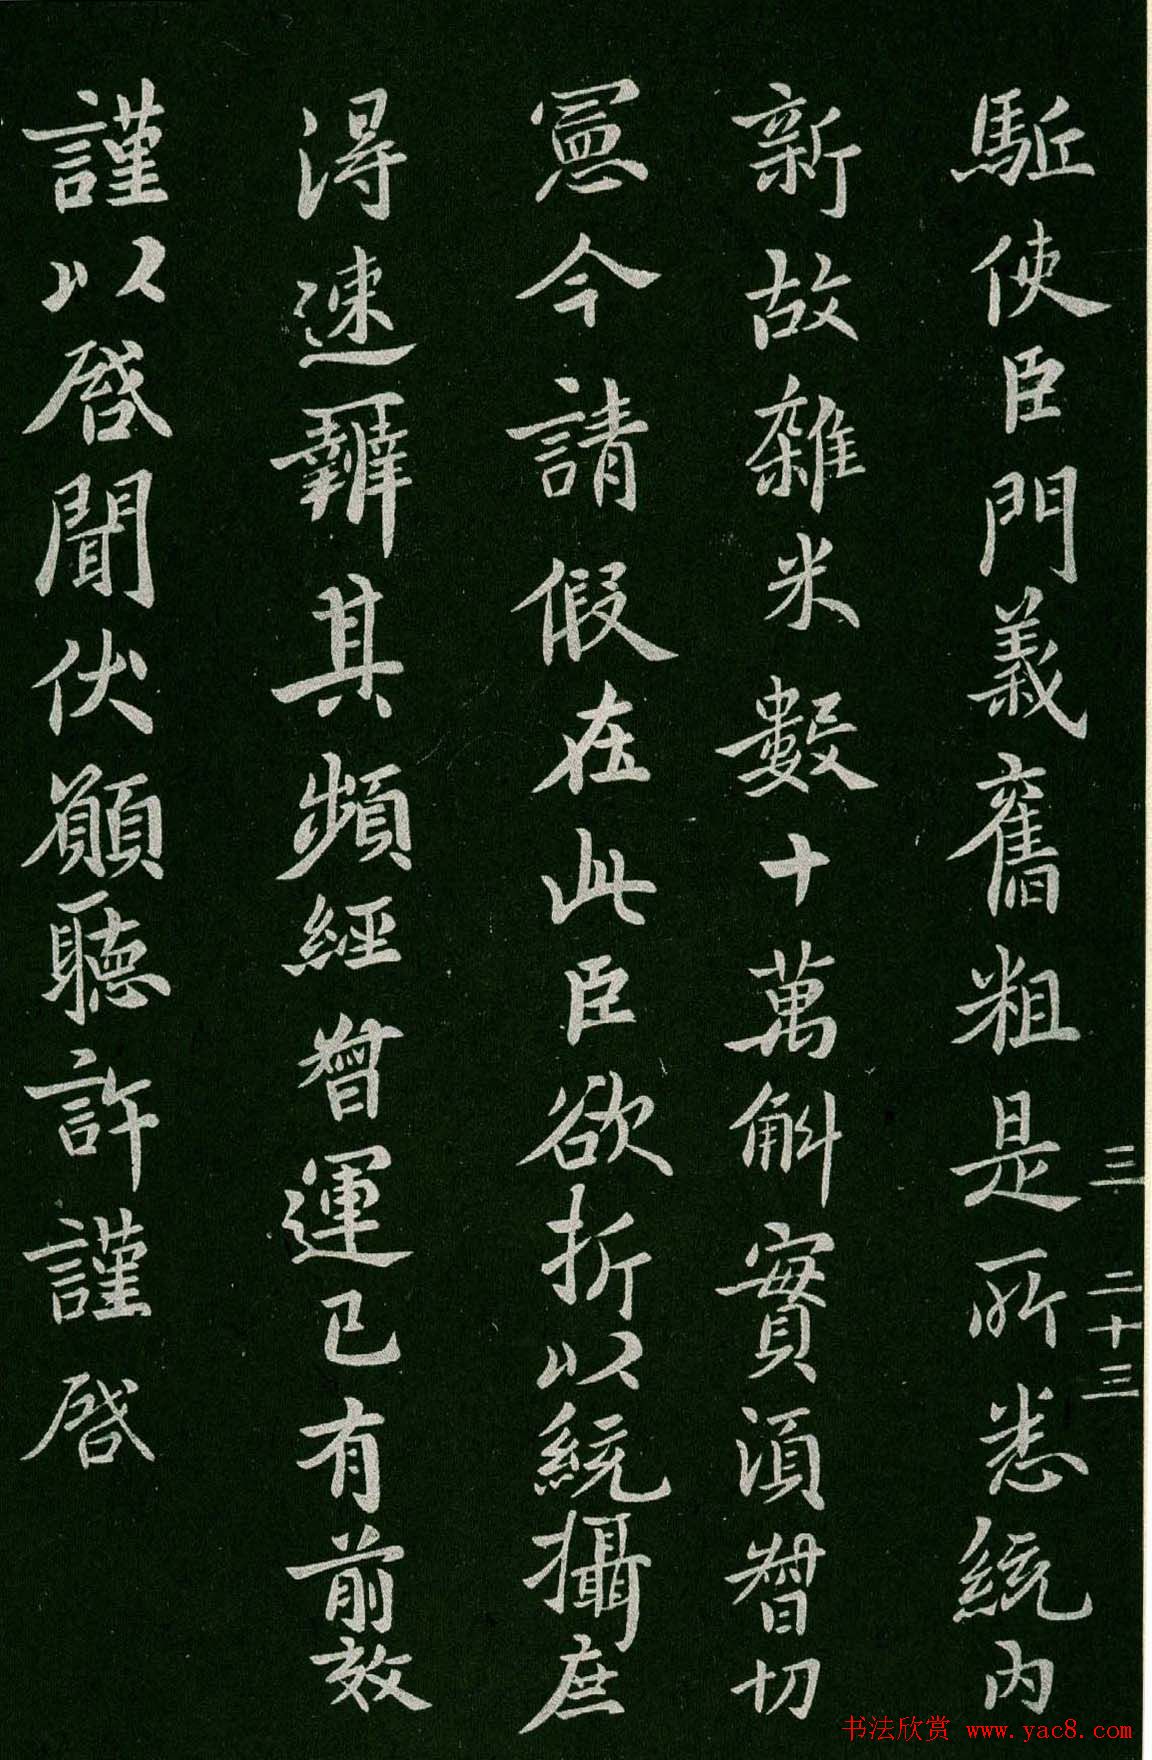 駈使臣門義舊粗是所悉統內
新故雜米數十萬斛實須督切
憲今請假在此臣欲折以統攝庶
得速辦其頻經督運已有前效
謹以啓聞伏願聽許謹啓
三 二十三
书法欣赏 www.yac8.com